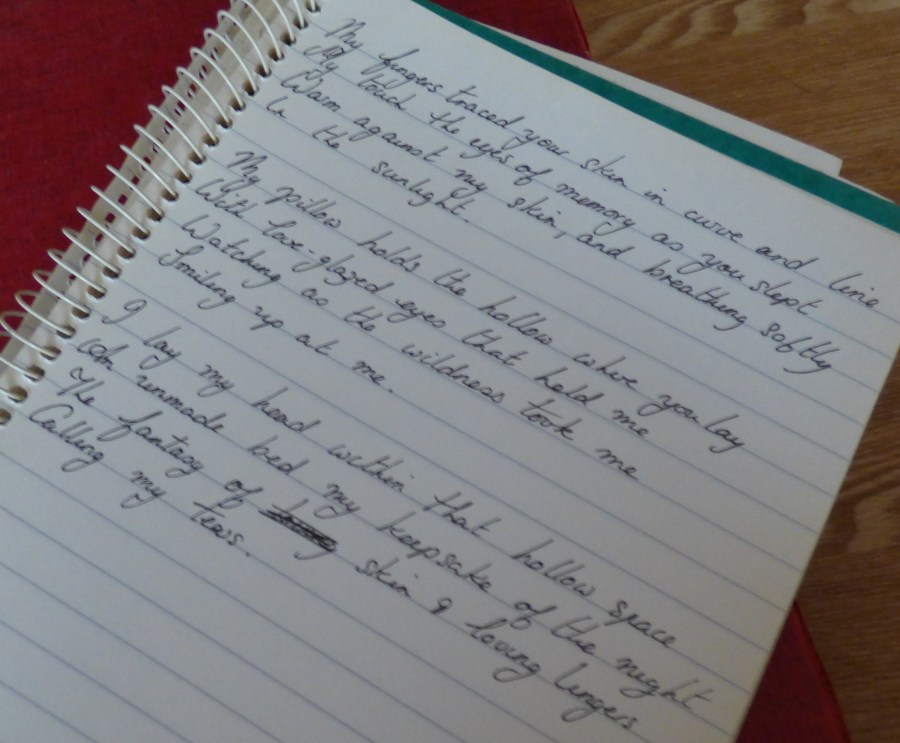 My fingers traced your skin in curve and line
My touch the eyes of memory as you slept
Warm against my skin, and breathing softly
In the sunlight.
My pillow holds the hollow where you lay
With love-glazed eyes that held me
Watching as the wildness took me
Smiling up at me.
I lay my head within that hollow space
Un unmade bed my keepsake of the night
The fantasy of skin & loving lingers
Calling my tears.